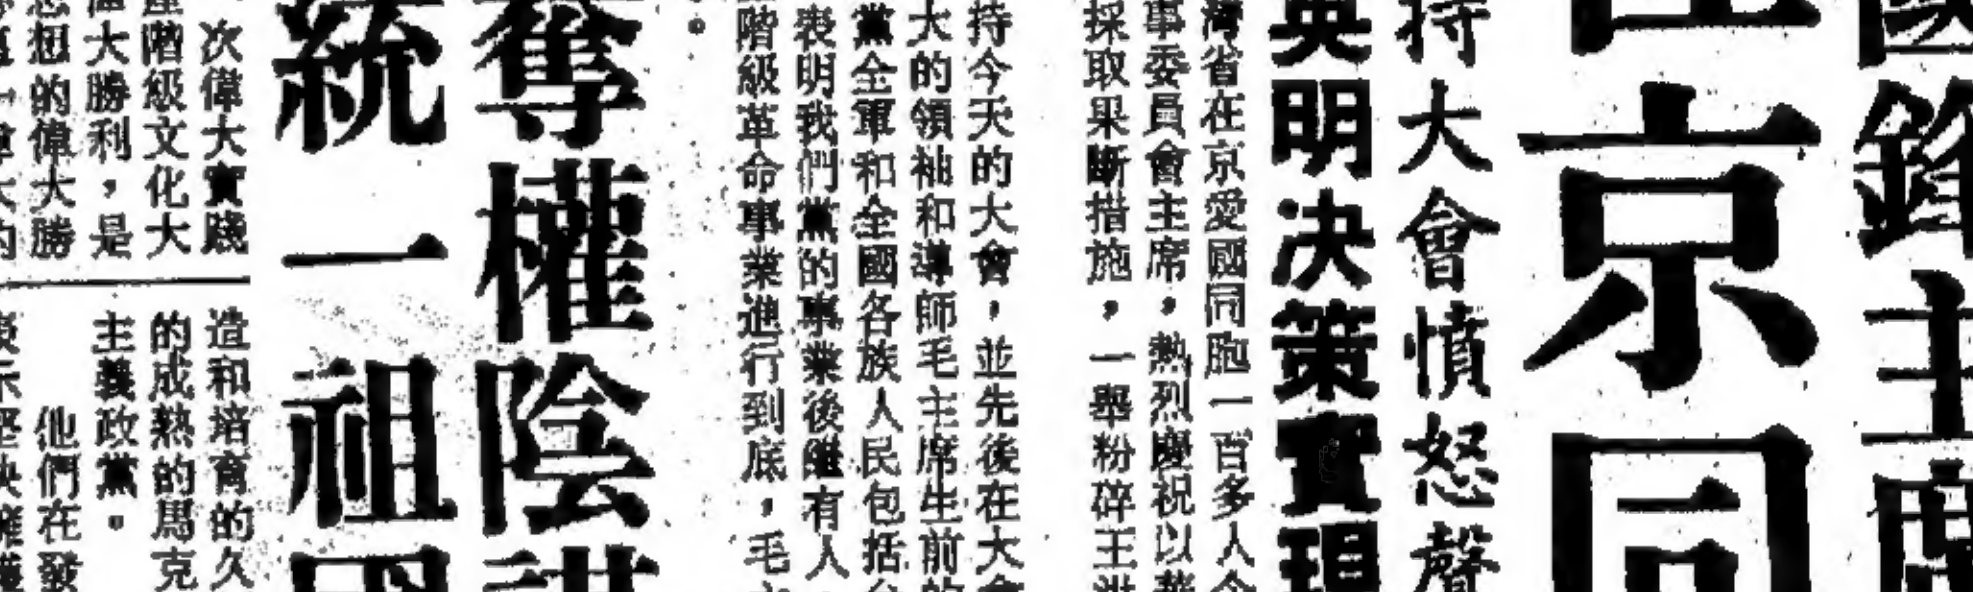 國鋒主席
在京同
持大會憤怒聲
英明決策實現
灣省在京愛國同胞一百多人今
事委員會主席，熱烈慶祝以華
採取果斷措施，一舉粉碎王洪
持今天的大會，並先後在大會
大的領袖和導師毛主席生前的
黨全軍和全國各族人民包括台
表明我們黨的事業後繼有人，
階級革命事業進行到底，毛主
。
奪權陰謀
統一祖國
次偉大實踐
產階級文化大
大勝利，是
思想的偉大勝
大的
造和培育的久
的成熟的馬克
主義政黨。
他們在發
表示堅決擁護